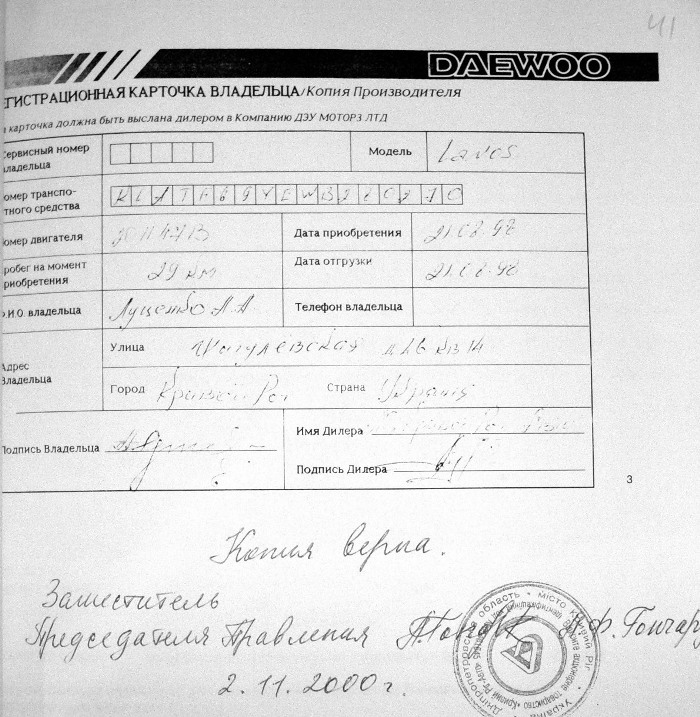 41
DAEWOO
ЕГИСТРАЦИОННАЯ КАРТОЧКА ВЛАДЕЛЬЦА/Копия Производителя
карточка должна быть выслана дилером в Компанию ДЭУ МОТОРЗ ЛТД
Сервисный номер владельца
Модель Lanos
омер транспо-
ртного средства
омер двигателя
Дата приобретения 21.08.98
робег на момент приобретения 29 км
Дата отгрузки 21.08.98
Ф.И.О. владельца Луценко А.А
Телефон владельца
Адрес Владельца
Улица д.16 кв 14
Город Кривой Рог Страна Украина
Подпись Владельца
Имя Дилера
Подпись Дилера
3
Копия верна.
Заместитель
Председателя Правления А.Ф. Гончар
2.11.2000г.
Дніпропетровська область * місто Кривий Ріг * Україна